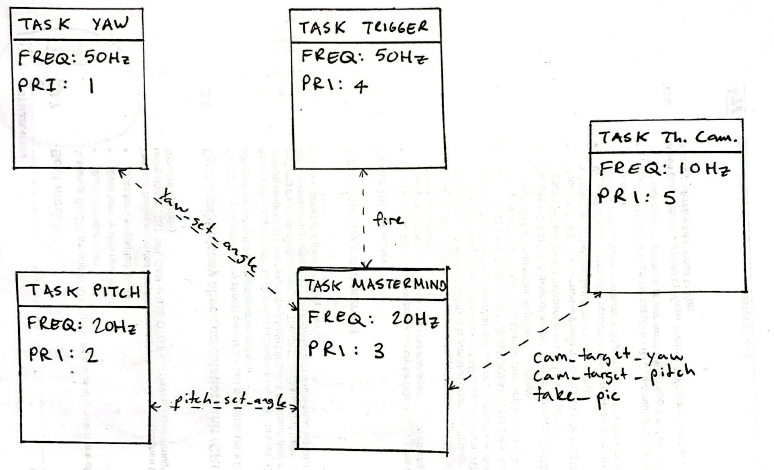 TASK YAW
FREQ: 50Hz
PRI: 1
TASK TRIGGER
FREQ: 50Hz
PRI: 4
TASK Th. Cam.
FREQ: 10Hz
PRI: 5
yaw_set_angle
fire
TASK PITCH
FREQ: 20Hz
PRI: 2
TASK MASTERMIND
FREQ: 20Hz
PRI: 3
pitch_set_angle
cam_target_yaw
cam_target_pitch
take_pic